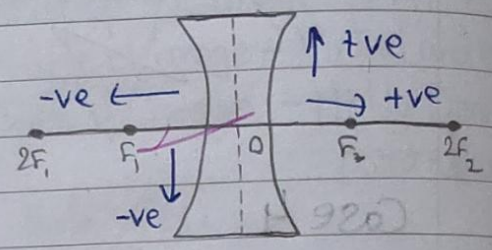 +ve
-ve
+ve
2F₁
F₁
O
F₂
2F₂
-ve